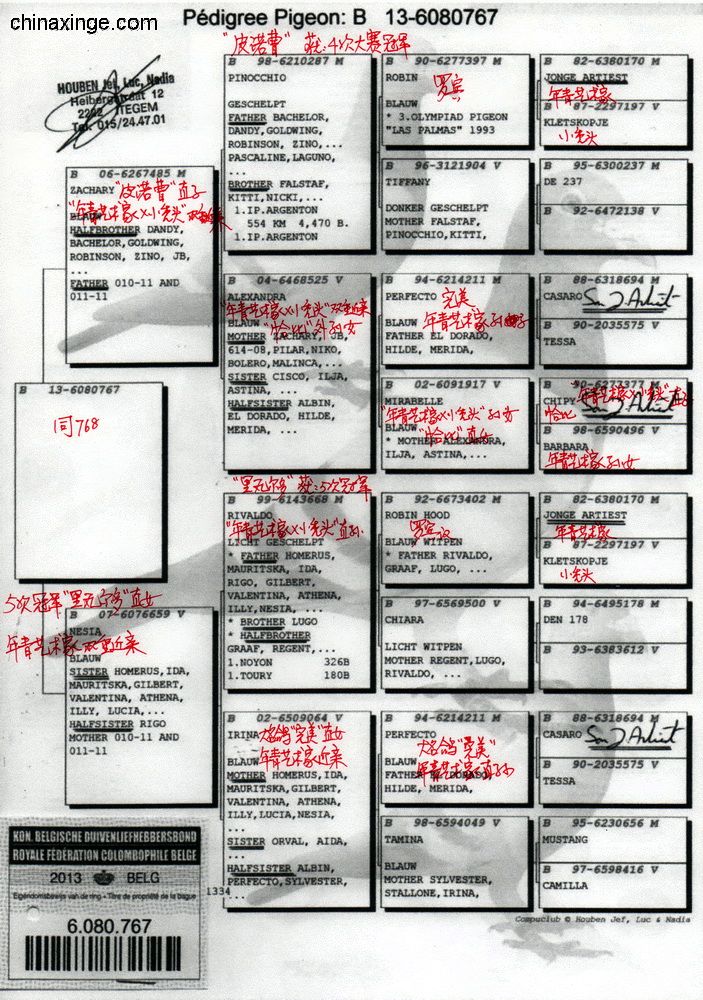 chinaxinge.com
Pédigree Pigeon: B 13-6080767
HOUBEN Jef, Luc, Nadia
Tel. 015/24.47.01
B 13-6080767
同768
B 06-6267485 M
ZACHARY "皮诺曹"直子
HALFBROTHER DANDY,
BACHELOR,GOLDWING,
ROBINSON, ZINO, JB,
...
FATHER 010-11 AND
011-11
5次冠军"里瓦尔多"直女
B 07-6076659 V
NESIA
BLAUW
SISTER HOMERUS,IDA,
MAURITSKA,GILBERT,
VALENTINA, ATHENA,
ILLY, LUCIA,...
HALFSISTER RIGO
MOTHER 010-11 AND
011-11
"皮诺曹" 获:4次大赛冠军
B 98-6210287 M
PINOCCHIO
GESCHELPT
FATHER BACHELOR,
DANDY,GOLDWING,
ROBINSON, ZINO,...
PASCALINE,LAGUNO,
...
BROTHER FALSTAF,
KITTI,NICKI,...
1.IP.ARGENTON
554 KM 4,470 B.
1.IP.ARGENTON
B 04-6468525 V
ALEXANDRA
BLAUW
MOTHER ZACHARY, JB,
614-08,PILAR,NIKO,
BOLERO,MALINCA,...
SISTER CISCO, ILJA,
ASTINA, ...
HALFSISTER ALBIN,
EL DORADO, HILDE,
MERIDA, ...
"里瓦尔多" 获:5次冠军
B 99-6143668 M
RIVALDO
LICHT GESCHELPT
* FATHER HOMERUS,
MAURITSKA, IDA,
RIGO, GILBERT,
VALENTINA, ATHENA,
ILLY,NESIA, ...
* BROTHER LUGO
* HALFBROTHER
GRAAF, REGENT,...
1.NOYON 326B
1.TOURY 180B
B 02-6509064 V
IRINA
BLAUW
MOTHER HOMERUS,IDA,
MAURITSKA,GILBERT,
VALENTINA, ATHENA,
ILLY,LUCIA,NESIA,
...
SISTER ORVAL, AIDA,
...
HALFSISTER ALBIN,
PERFECTO,SYLVESTER,
...
B 90-6277397 M
ROBIN
罗宾
BLAUW
* 3.OLYMPIAD PIGEON
"LAS PALMAS" 1993
B 96-3121904 V
TIFFANY
DONKER GESCHELPT
MOTHER FALSTAF,
PINOCCHIO,KITTI,
B 94-6214211 M
PERFECTO 完美
BLAUW
FATHER EL DORADO,
HILDE, MERIDA,
B 02-6091917 V
MIRABELLE
BLAUW
* MOTHER ALEXANDRA,
ILJA, ASTINA,...
B 92-6673402 M
ROBIN HOOD
BLAUW WITPEN
* FATHER RIVALDO,
GRAAF, LUGO, ...
B 97-6569500 V
CHIARA
LICHT WITPEN
MOTHER REGENT,LUGO,
RIVALDO, ...
B 94-6214211 M
PERFECTO
BLAUW
HILDE, MERIDA,
B 98-6594049 V
TAMINA
BLAUW
MOTHER SYLVESTER,
STALLONE,IRINA,
B 82-6380170 M
JONGE ARTIEST
年青艺术家
B 87-2297197 V
KLETSKOPJE
小秃头
B 95-6300237 M
DE 237
B 92-6472138 V
B 88-6318694 M
CASARO
B 90-2035575 V
TESSA
B 90-6277377 M
CHIPY
B 98-6590496 V
BARBARA
年青艺术家孙女
B 82-6380170 M
JONGE ARTIEST
年青艺术家
B 87-2297197 V
KLETSKOPJE
小秃头
B 94-6495178 M
DEN 178
B 93-6383612 V
B 88-6318694 M
CASARO
B 90-2035575 V
TESSA
B 95-6230656 M
MUSTANG
B 97-6598416 V
CAMILLA
Compuclub © Houben Jef, Luc & Nadia
KON. BELGISCHE DUIVENLIEFHEBBERSBOND
ROYALE FÉDÉRATION COLOMBOPHILE BELGE
2013 BELG
Eigendomsbewijs van de ring - Titre de propriété de la bague
1334
6.080.767